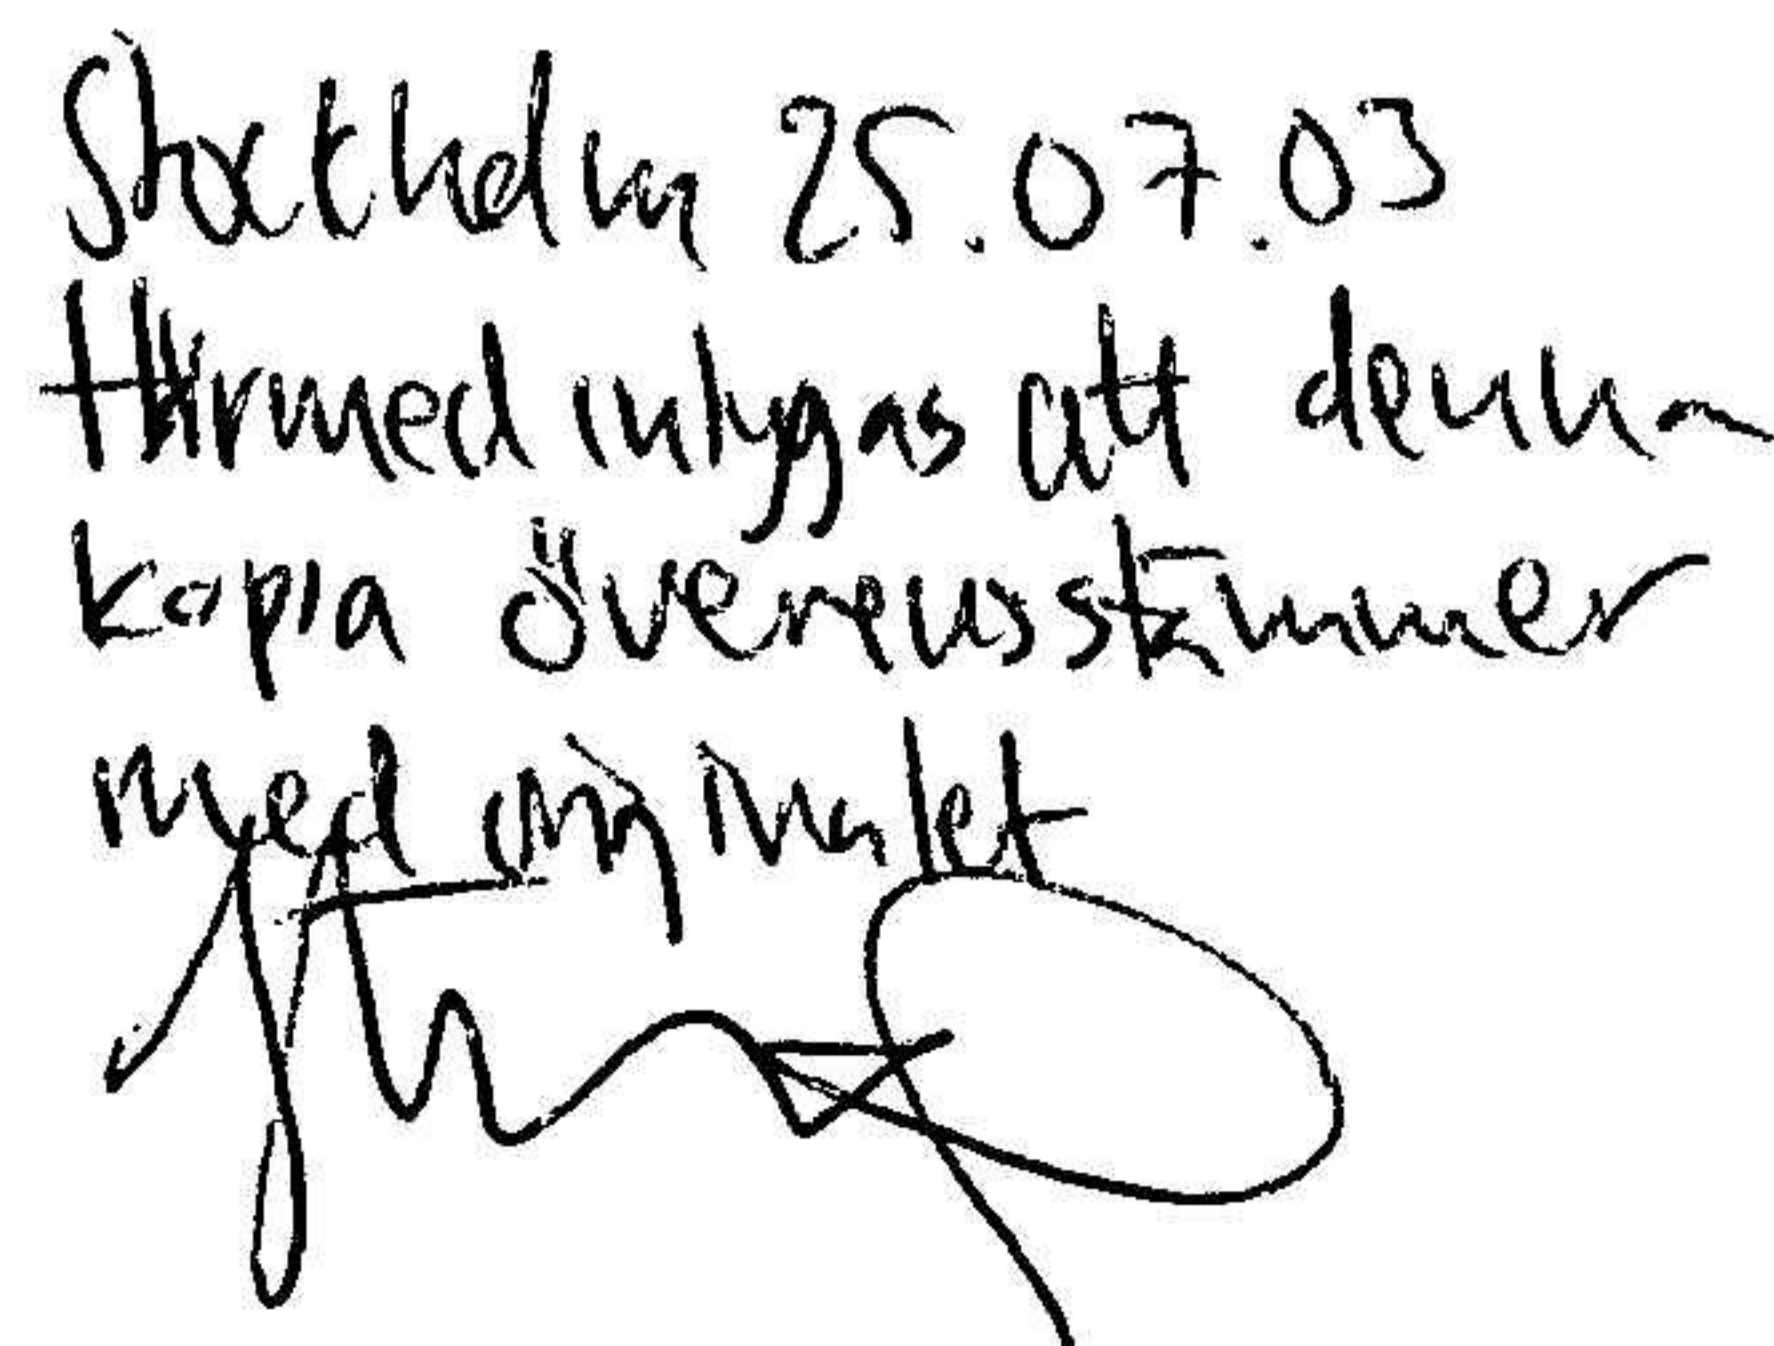 Stockholm 25.07.03
Härmed intygas att denna
kopia överensstämmer
med originalet